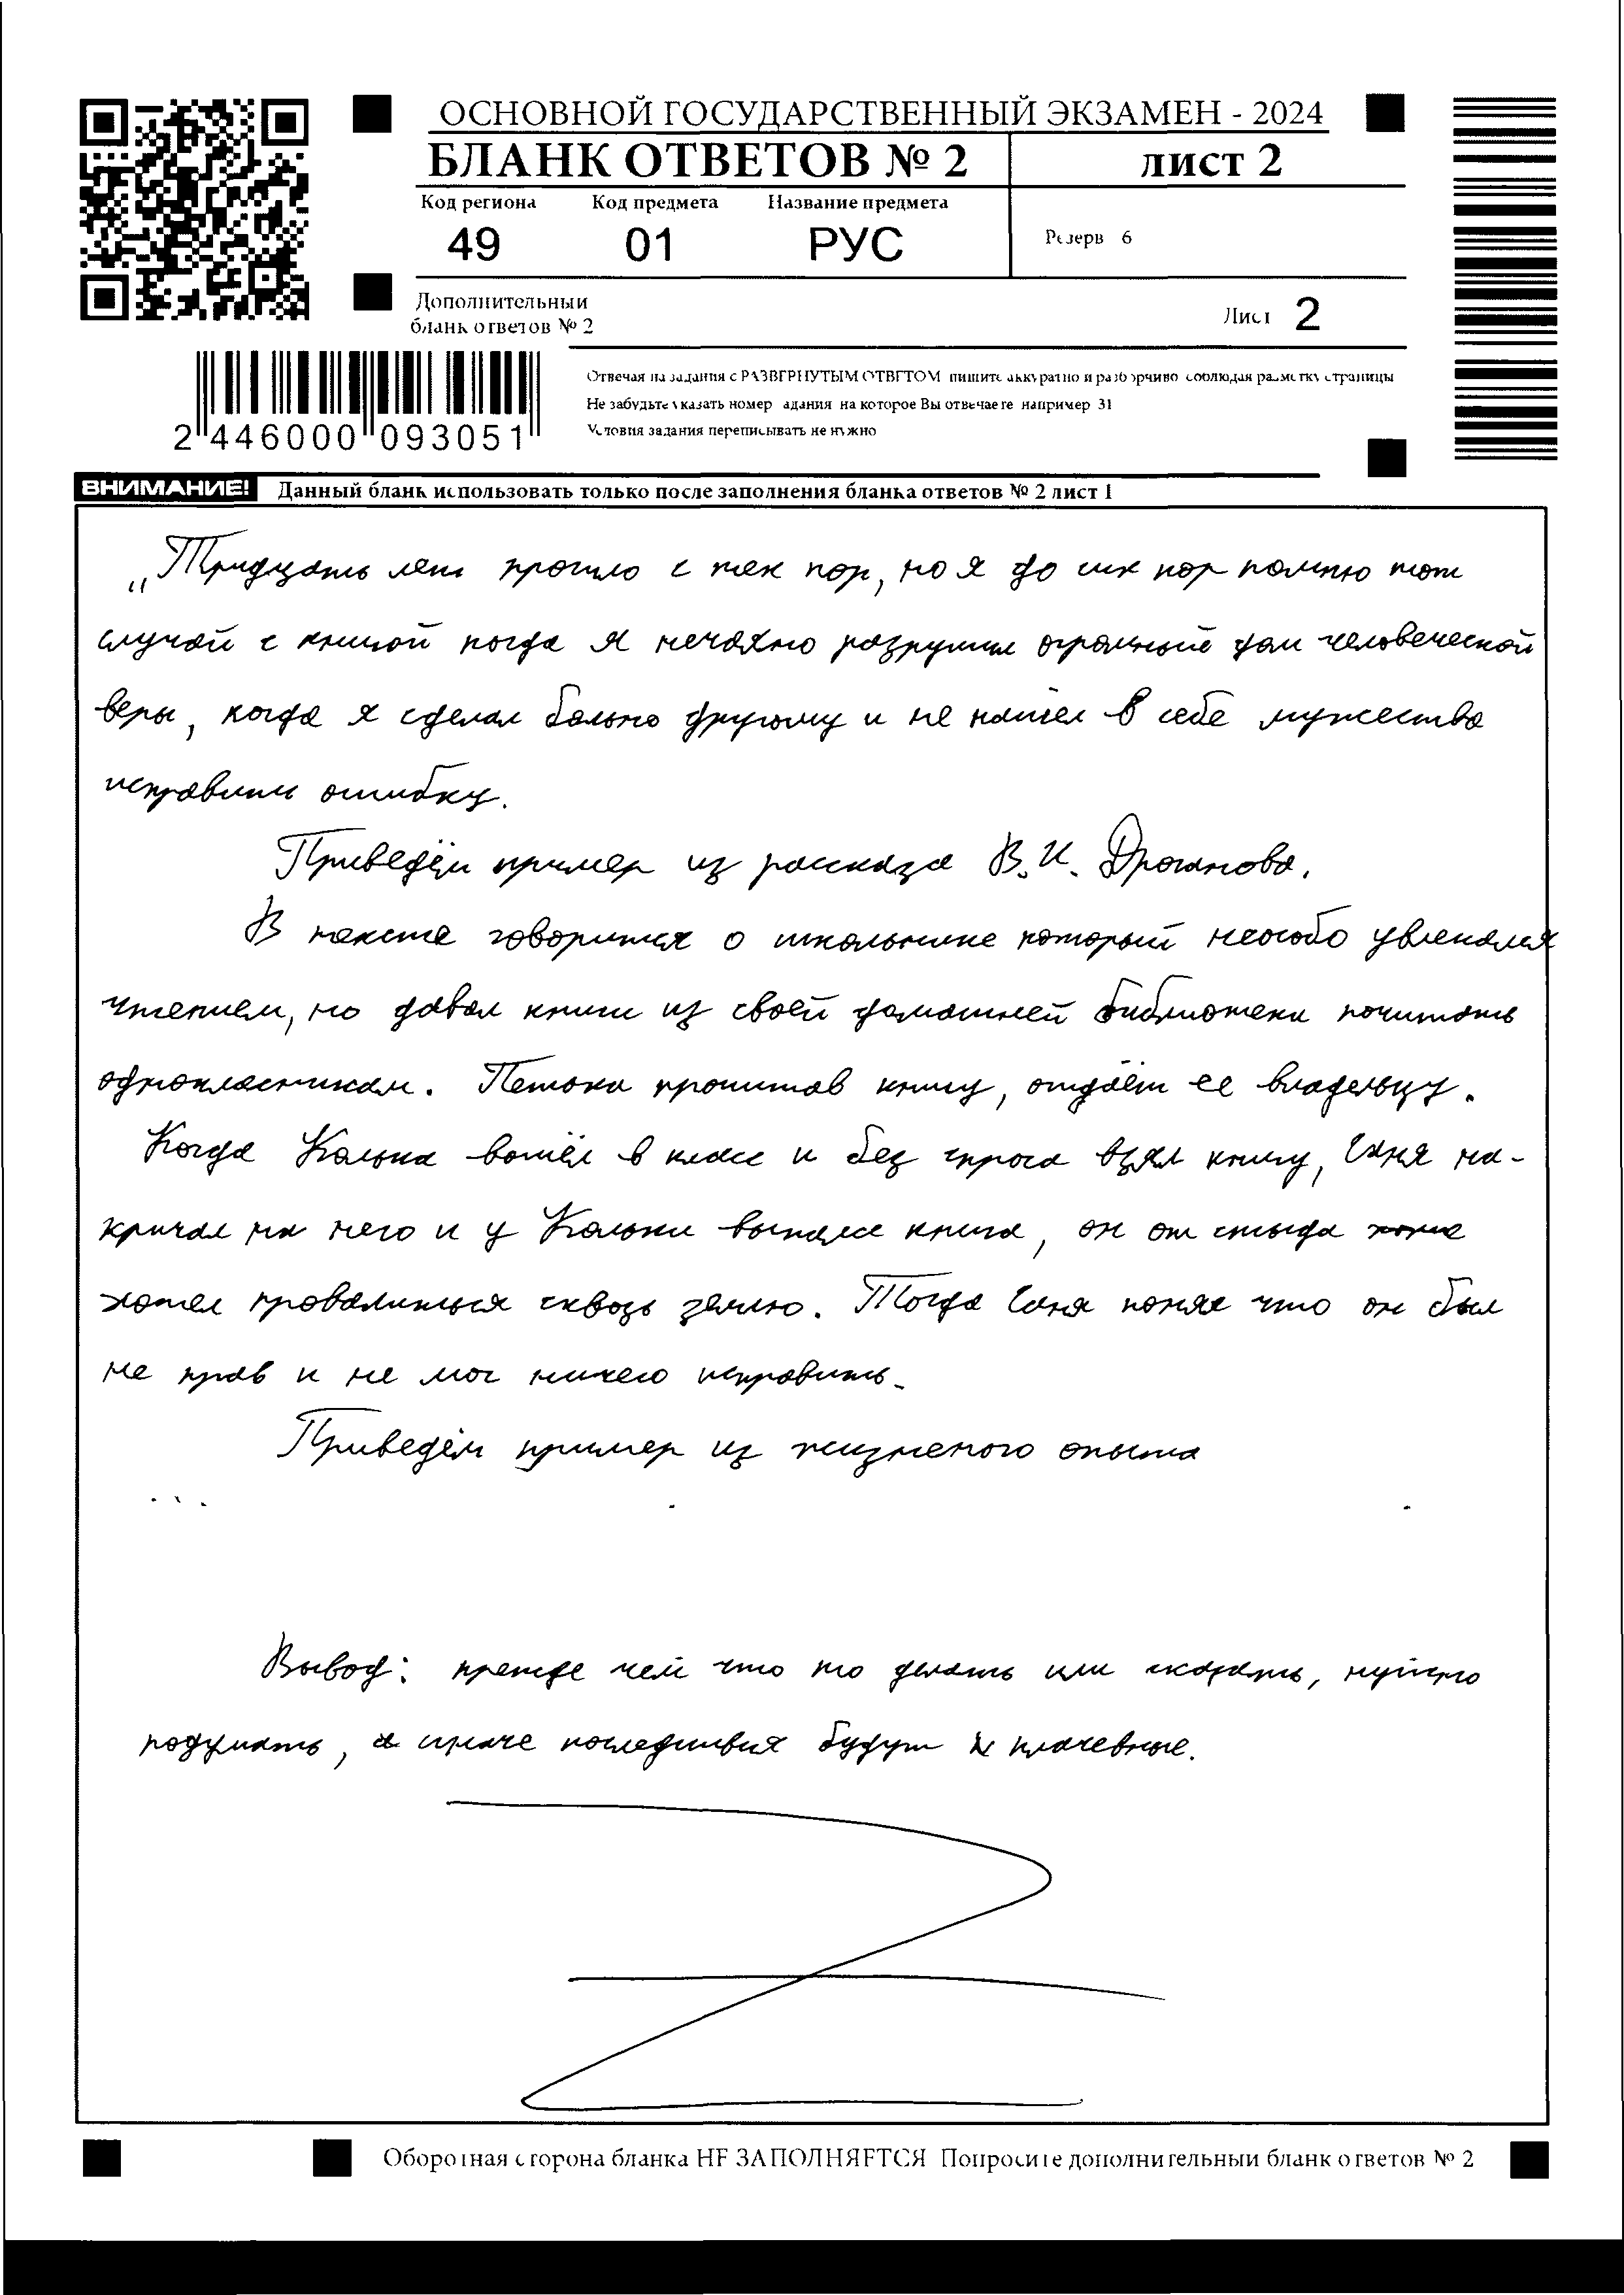 ОСНОВНОЙ ГОСУДАРСТВЕННЫЙ ЭКЗАМЕН - 2024
БЛАНК ОТВЕТОВ № 2
ЛИСТ 2
Код региона Код предмета Название предмета
49 01 РУС
Резерв 6
Дополнительный
бланк ответов № 2
Лист 2
Отвечая на задания с РАЗВЕРНУТЫМ ОТВЕТОМ пишите аккуратно и разборчиво соблюдая разметку страницы
Не забудьте указать номер задания на которое Вы отвечаете например 31
Условия задания переписывать не нужно
2 446000 093051
ВНИМАНИЕ! Данный бланк использовать только после заполнения бланка ответов № 2 лист 1
„Тридцать лет прошло с тех пор, но я до сих пор помню тот
случай с книгой когда я нечаяно разрушил огромный дом человеческой
веры, когда я сделал больно другому и не нашёл в себе мужества
исправить ошибку.
Приведём пример из рассказа В.И. Дроганова.
В тексте говорится о школьнике который неособо увлекался
чтением, но давал книги из своей домашней библиотеки почитать
однокласникам. Петока прочитав книгу, отдаёт ее владельцу.
Когда Колька вошёл в класс и без спроса взял книгу, Саня на-
кричал на него и у Кольки выпала книга, он от стыда
хотел провалиться сквозь землю. Тогда Саня понял что он был
не прав и не мог ничего исправить.
Приведём пример из жизненого опыта
Вывод: прежде чем что то делать или сказать, нужно
подумать, а иначе последствия будут плачевные.
Оборотная сторона бланка НЕ ЗАПОЛНЯЕТСЯ Попросите дополнительный бланк ответов № 2